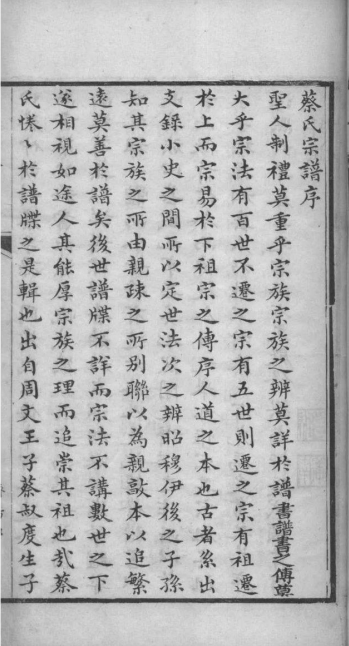 蔡氏宗譜序
聖人制禮莫重乎宗族宗族之辨莫詳於譜書譜書之傳莫
大乎宗法有百世不遷之宗有五世則遷之宗有祖遷
於上而宗易於下祖宗之傳序人道之本也古者系出
支錄小史之間所以定世法次之辨昭穆伊後之子孫
知其宗族之所由親疎之所別聯以為親敲本以追繁
遠莫善於譜矣後世譜牒不詳而宗法不講數世之下
遂相視如途人其能厚宗族之理而追崇其祖也哉蔡
氏惓、於譜牒之是輯也出自周文王子蔡叔度生子